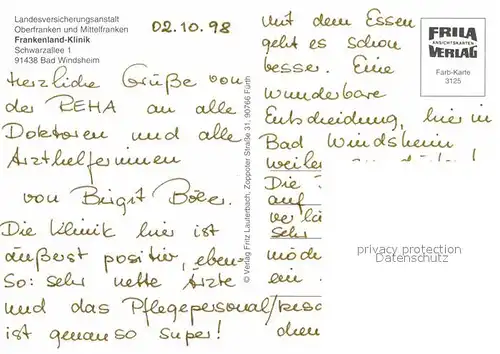 Landesversicherungsanstalt
Oberfranken und Mittelfranken
Frankenland-Klinik
Schwarzallee 1
91438 Bad Windsheim
02.10.98
Herzliche Grüße von
der REHA an alle
Doktoren und alle
Arzthelferinnen
von Birgit
Die Klinik hier ist
äußerst positiv, eben-
so: sehr nette Ärzte
und das Pflegepersonal/
ist genauso super!
© Verlag Fritz Lauterbach, Zoppoter Straße 31, 90766 Fürth
mit dem Essen
geht es schon
besser. Eine
wunderbare
Entscheidung, hier in
Bad Windsheim
Die
auf
sehr
ein
FRILA
ANSICHTSKARTEN
VERLAG
Farb-Karte
3125
privacy protection
Datenschutz